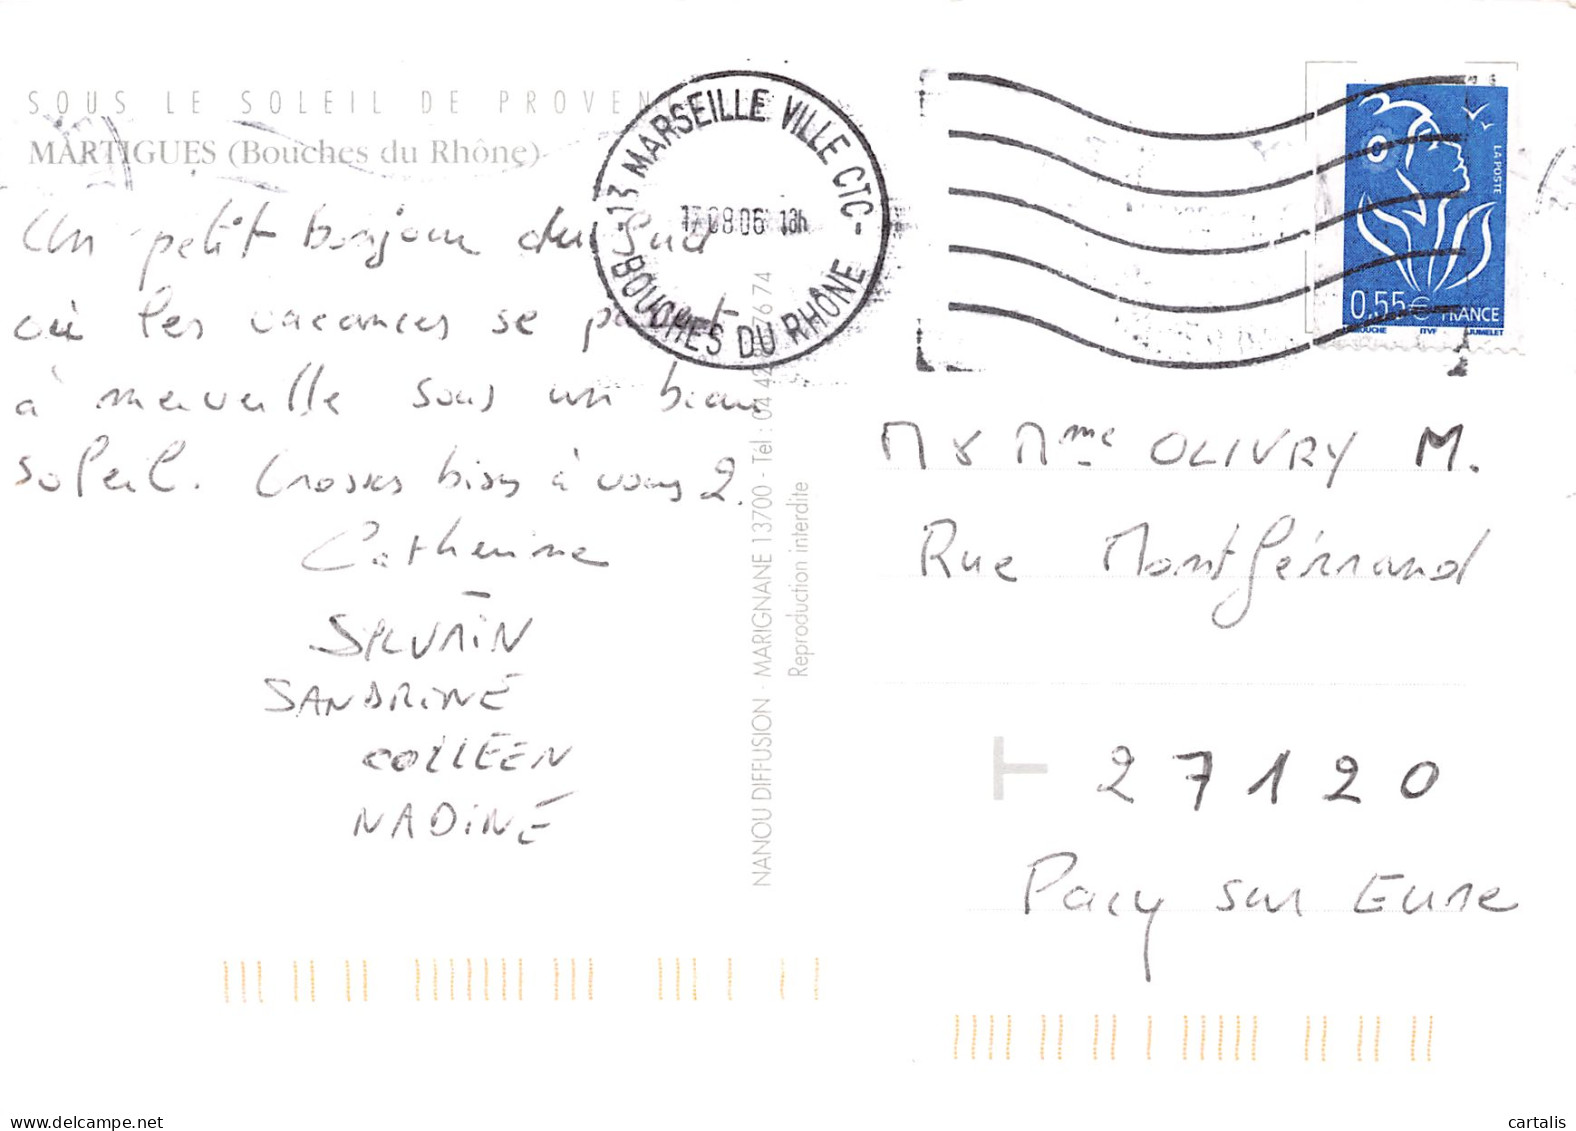 SOUS LE SOLEIL DE PROVEN
MARTIGUES (Bouches du Rhône)
Un petit bonjour du Sud
où les vacances se passent
à merveille sous un beau
soleil. Grosses bises à vous 2.
Catherine
SYLVAIN
SANDRINE
COLLEEN
NADINE
13 MARSEILLE VILLE CTC-
17 08 06 18h
BOUCHES DU RHÔNE
NANOU DIFFUSION - MARIGNANE 13700 - Tél : 04 42 76 74
Reproduction interdite
LA POSTE
0.55€ FRANCE
LAMOUCHE ITVF JUMELET
M & Mme OLIVRY M.
Rue Montférrand
T 27120
Pacy sur Eure
delcampe.net
cartalis